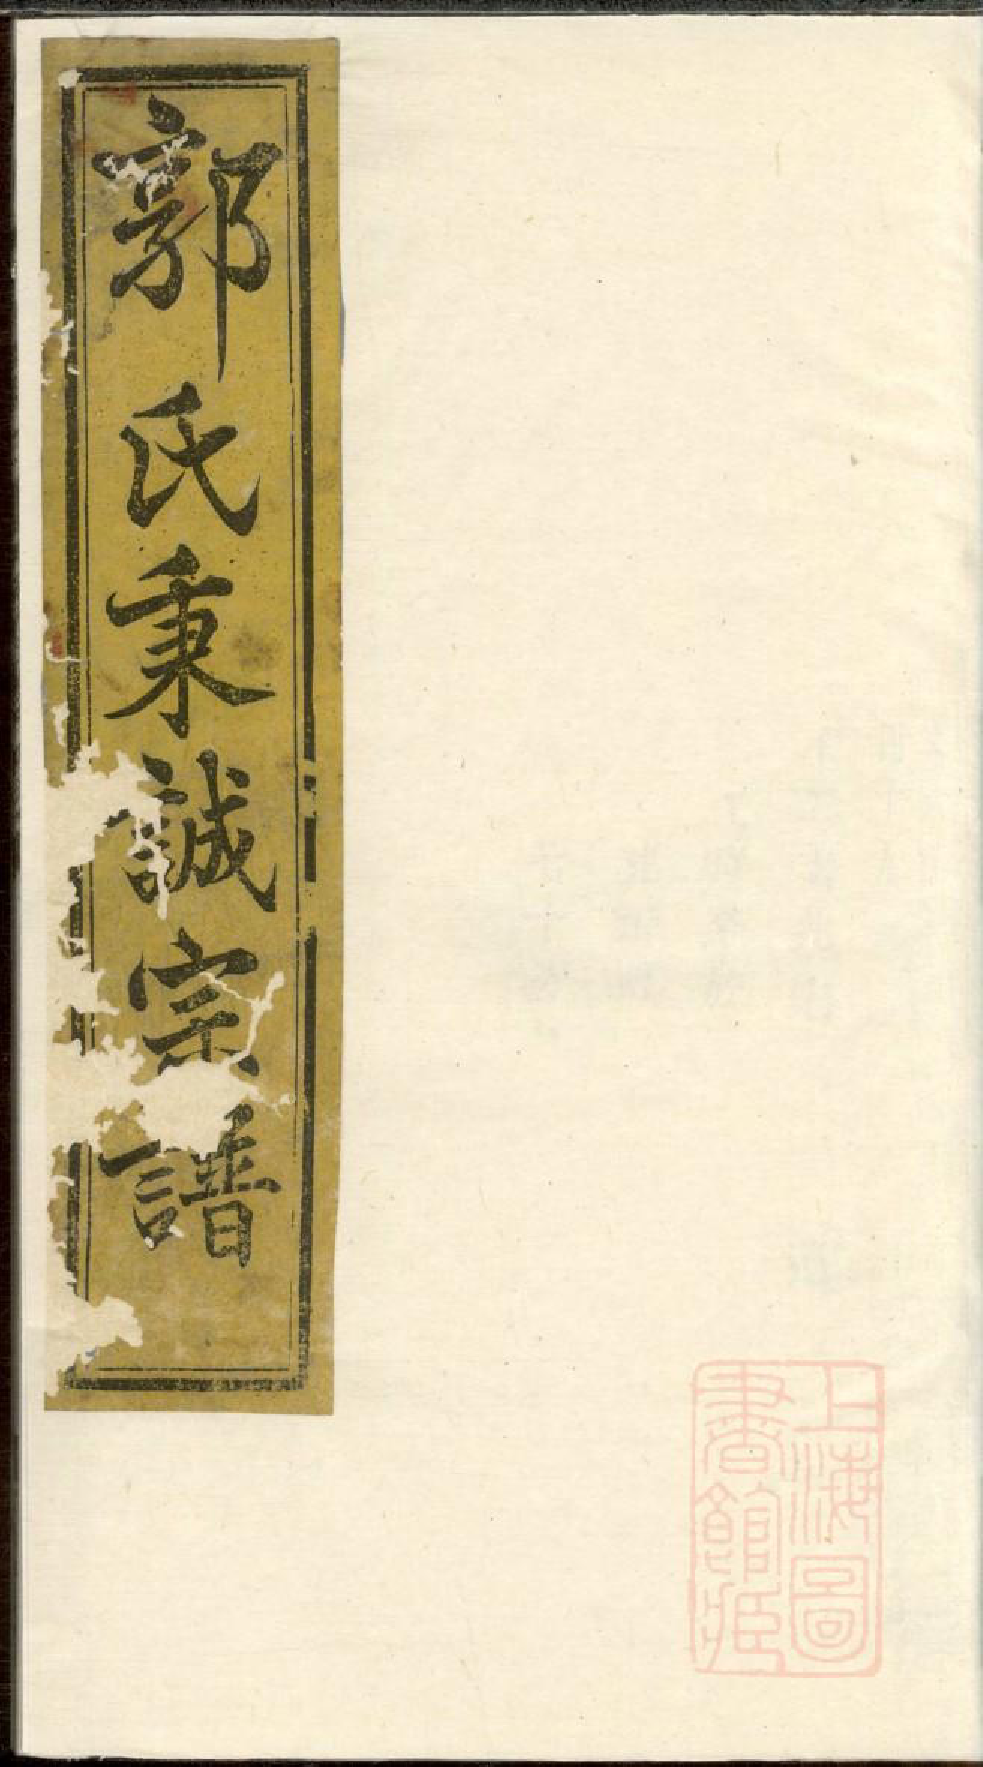 郭氏秉誠宗譜
上海圖
書館藏